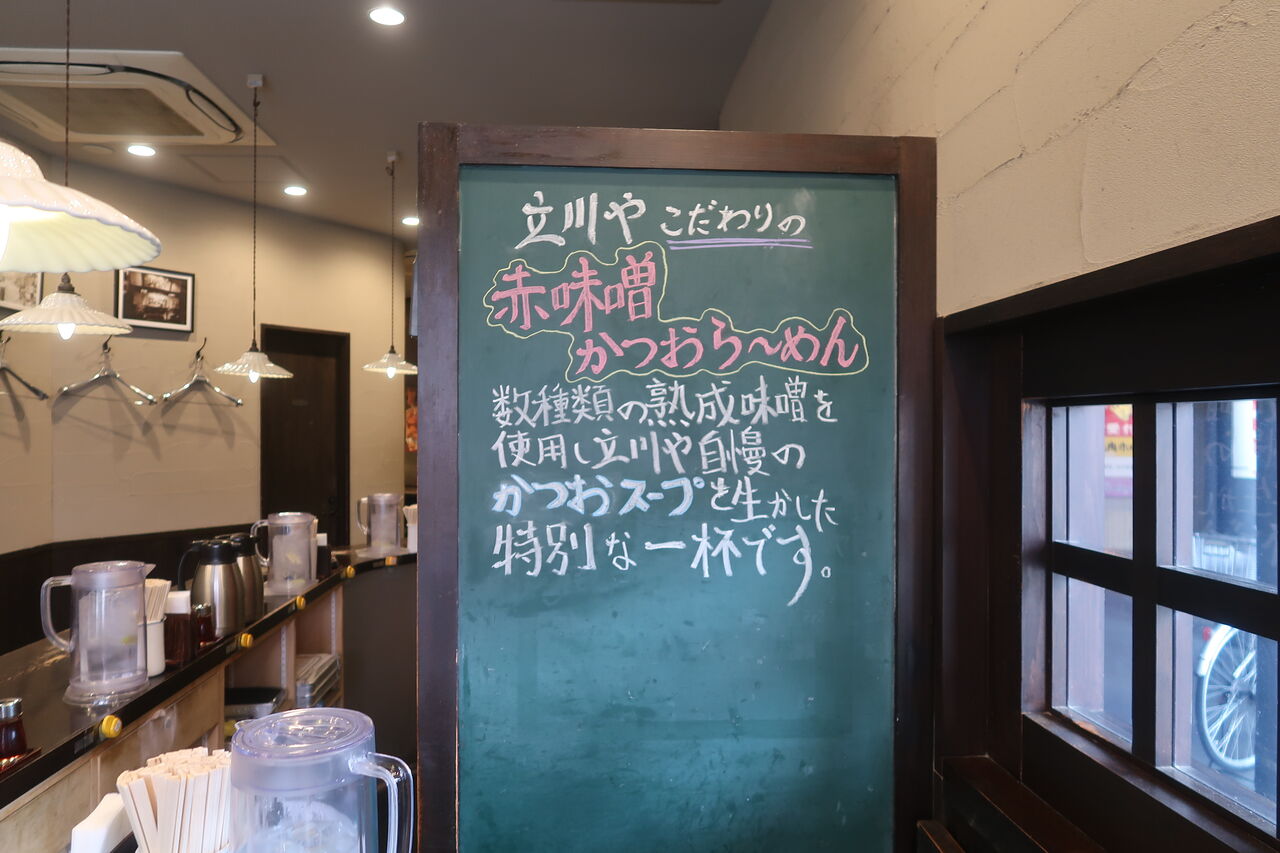 立川や こだわりの
赤味噌
かつおら〜めん
数種類の熟成味噌を
使用し立川や自慢の
かつおスープを生かした
特別な一杯です。